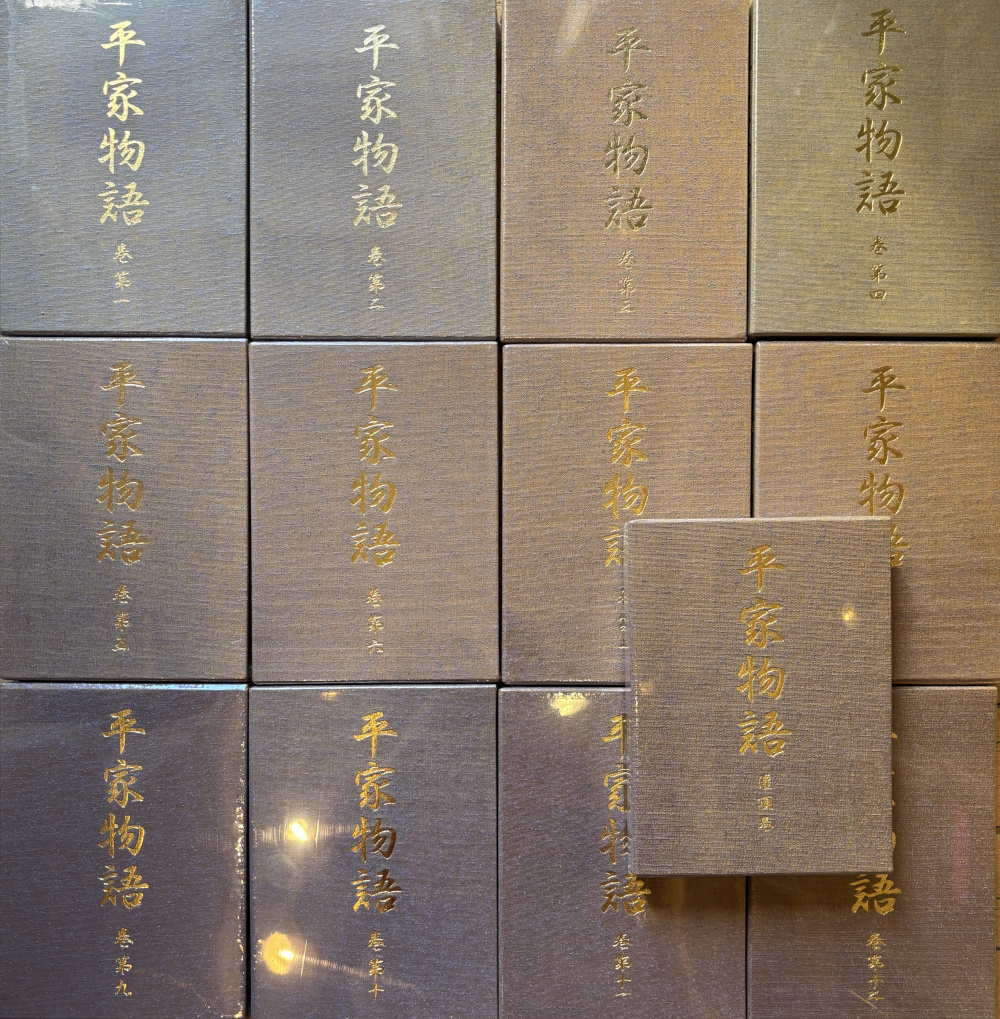 平家物語 巻第一
平家物語 巻第二
平家物語 巻第三
平家物語 巻第四
平家物語 巻第五
平家物語 巻第六
平家物語
平家物
平家物語 灌頂巻
平家物語 巻第九
平家物語 巻第十
平家物語 巻第十一
語 巻第十二